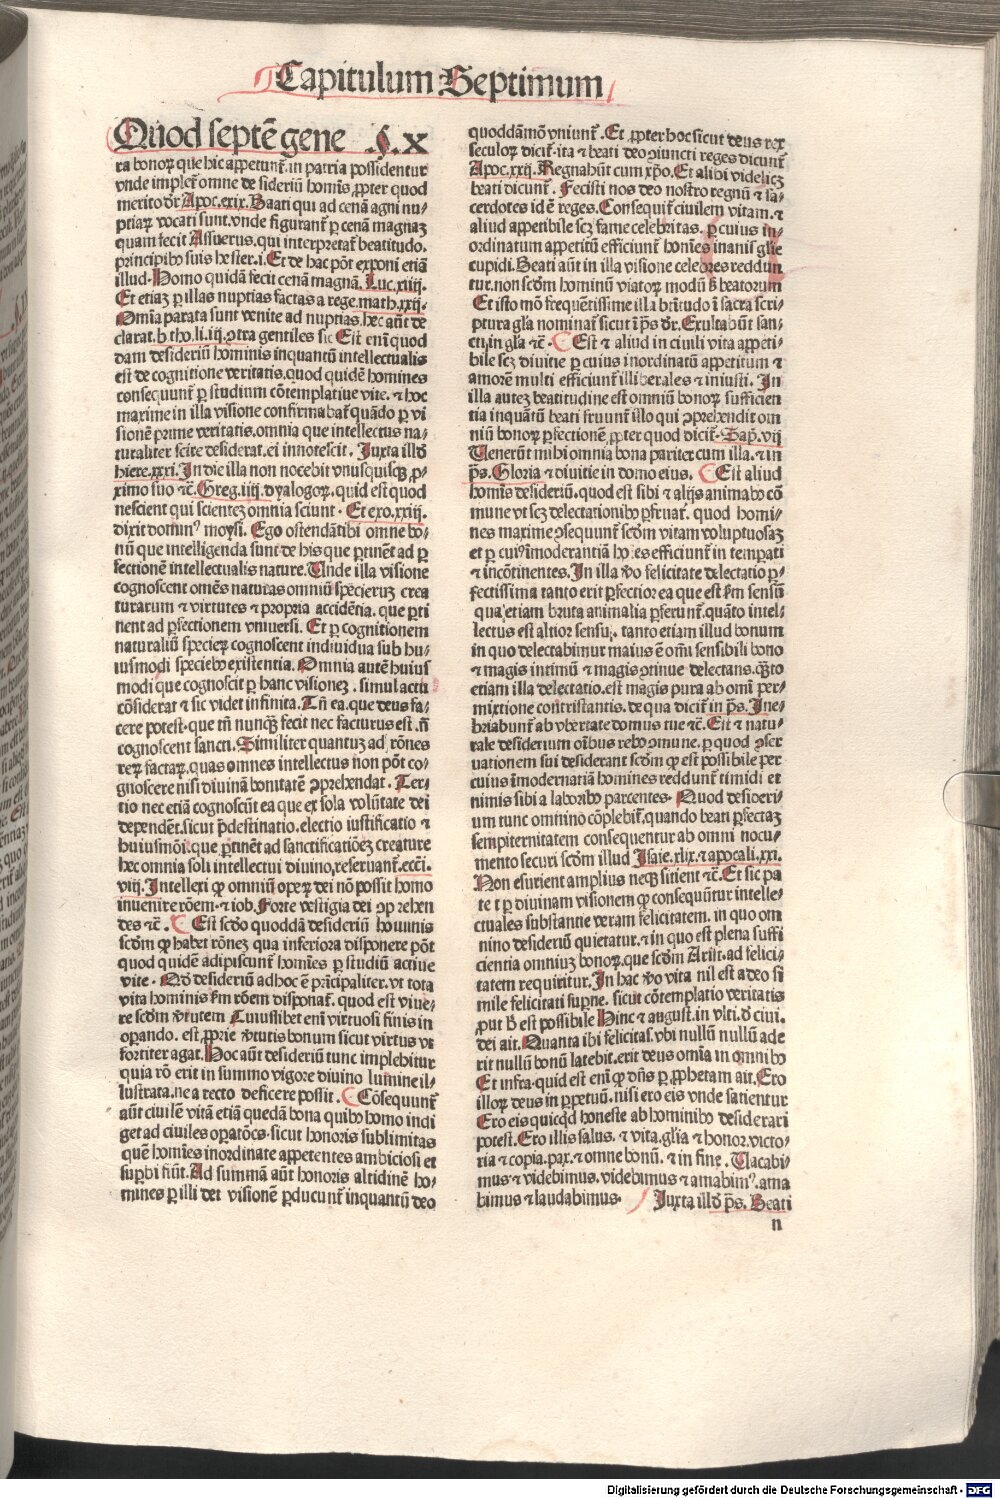 Capitulum Septimum
Quod septē gene .§.x
ra bonoꝝ que hic appetunt᷑.in patria possidentur
vnde implet᷑ omne de sideriū homīs ꝓpter quod
merito dr̄ Apoc.xix.Baati qui ad cenā agni nu⸗
ptiaꝝ vocati sunt.vnde figurant᷑ ꝑ cenā magnaꝫ
quam fecit Assuerus.qui interpretat᷑ beatitudo.
principibꝰ suis hester.i.Et de hac pōt exponi etiā
illud.Homo quidā fecit cenā magnā. Luc.xiiij.
Et etiaꝫ ꝑ illas nuptias factas a rege.math.xxij.
Omīa parata sunt venite ad nuptias.hec aūt de
clarat.b.tho.li.iij.ꝯtra gentiles sic Est enī quod
dam desideriū hominis inquantū intellectualis
est de cognitione veritatis.quod quidē homines
consequunt᷑ ꝑ studium cōtemplatiue vite. ⁊ hoc
maxime in illa visione confirmabat᷑ quādo ꝑ vi
sionē prime veritatis.omnia que intellectus na⸗
turaliter scire desiderat.ei innotescit. Juxta illđ
hiere.xxxi.In die illa non nocebit vnusquisqꝫ ꝓ⸗
ximo suo ⁊c̄. Greg.iiij.dyalogoꝝ.quid est quod
nesciunt qui scientez omnia sciunt. Et exo.xxiij.
dixit dominꝰ moysi. Ego ostendātibi omne bo⸗
nū que intelligenda sunt de his que ꝑtinēt ad ꝑ
fectionē intellectualis nature.Unde illa visione
cognoscent omēs naturas omniū specieruꝫ crea
turarum ⁊ virtutes ⁊ propria accidētia. que ꝑti
nent ad ꝑfectionem vniuersi. Et ꝑ cognitionem
naturaliū specieꝝ cognoscent indiuidua sub hu⸗
iusmodi speciebꝰ existentia. Omnia autē huius
modi que cognoscit ꝑ hanc visioneꝫ.simul actu
cōsiderat ⁊ sic videt infinita.Tn̄ ea.que deus fa⸗
cere potest.que tn̄ nunqꝫ fecit nec facturus est.n̄
cognoscent sancti.Similiter quantuꝫ ad rōnes
reꝝ factaꝝ.quas omnes intellectus non pōt co⸗
gnoscere nisi diuinā bonitatē ꝯprehendat. Ter⸗
tio nec etiā cognoscūt ea que ex sola volūtate dei
dependēt.sicut p̄destinatio.electio iustificatio ⁊
huiusmōi.que ꝑtinēt ad sanctificatiōeꝫ creature
hec omnia soli intellectui diuino.reseruant᷑.ecci.
viij.Intellexi ꝙ omniū opeꝝ dei nō possit homo
inuenire rōem.⁊ iob.Forte vestigia dei ꝯp rehen
des ⁊c̄. Est scđo quoddā desideriū hominis
scđm ꝙ habet rōneꝫ qua inferiora disponere pōt
quod quidē adipiscunt᷑ homīes ꝑ studiū actiue
vite. Qđ desideriū adhoc ē prīcipaliter.vt tota
vita hominis fm rōem disponat᷑.quod est viue⸗
re scđm v̄tutem Cuiuslibet enī virtuosi finis in
oꝑando. est.ꝓprie v̄tutis bonum sicut virtus vt
fortiter agat.Hoc aūt desideriū tunc implebitur
quia rō erit in summo vigore diuino lumine il⸗
lustrata.ne a recto deficere possit. Cōsequunt᷑
aūt ciuilē vitā etiā quedā bona quibꝰ homo indi
get ad ciuiles oꝑatōes.sicut honoris sublimitas
quē homīes inordinate appetentes ambiciosi et
suꝑbi fiūt.Ad summā aūt honoris altidinē ho⸗
mines ꝑ illi dei visionē ꝑducunt᷑ inquantū deo
quoddāmō vniunt᷑.Et ꝓpter hoc sicut deus rex
seculoꝝ dicit᷑.ita ⁊ beati deo ꝯiuncti reges dicunt᷑
Apoc.xxij.Regnabūt cum xp̄o.Et alibi videlicꝫ
beati dicunt᷑. Fecisti nos deo nostro regnū ⁊ sa⸗
cerdotes id ē reges.Consequit᷑ ciuilem vitam.⁊
aliud appetibile scꝫ fame celebritas. ꝑ cuius in⸗
ordinatum appetitū efficiunt᷑ homīes inanis glīe
cupidi.Beati aūt in illa visione celebres reddun
tur.non scđm hominū viatoꝝ modū ꝫ beatorum
Et isto mō frequētissime illa btītudo ī sacra scri⸗
ptura glīa nominat᷑ sicut ī ps̄ dr̄.Exultabūt san⸗
cti,in glīa ⁊c̄. Est ⁊ aliud in ciuili vita appeti⸗
bile scꝫ diuitie ꝑ cuius inordinatū appetitum ⁊
amorē multi efficiunt᷑ illiberales ⁊ iniusti. In
illa auteꝫ beatitudine est omniū bonoꝝ sufficien
tia inquātū beati fruunt᷑ illo qui ꝯprehendit om
niū bonoꝝ ꝑfectionē ꝓpter quod dicit᷑.Sap̄.vij
Venerūt mihi omnia bona pariter cum illa.⁊ in
ps̄.Gloria ⁊ diuitie in domo eius. Est aliud
homīs desideriū.quod est sibi ⁊ alijs animabꝰ cō
mune vt scꝫ delectationibꝰ ꝑfruat᷑. quod homi⸗
nes maxime ꝯsequunt᷑ scđm vitam voluptuosaꝫ
et ꝑ cuiꝰ īmoderantiā hoīes efficiunt᷑ in temꝑati
⁊ incōtinentes.In illa v̄o felicitate delectatio ꝑ⸗
fectissima tanto erit ꝑfectior ea que est fm sensū
qua etiam bruta animalia ꝑferunt᷑.quāto intel⸗
lectus est altior sensu. tanto etiam illud bonum
in quo delectabimur maius ē omī sensibili bono
⁊ magis intimū ⁊ magis ꝯtinue delectans.qꝫto
etiam illa delectatio.est magis pura ab omī per⸗
mixtione contristantis.de qua dicit᷑ in ps̄.Ine⸗
briabunt᷑ ab vbertate domus tue ⁊c̄. Est ⁊ natu⸗
rale desiderium oībus rebꝰ ꝯmune.ꝑ quod ꝯser
uationem sui desiderant scđm ꝙ est possibile per
cuius īmodernatiā homines reddunt᷑ timidi et
nimis sibi a laboribꝰ parcentes. Quod desideri⸗
um tunc omnino cōplebit᷑.quando beati ꝑfectaꝫ
sempiternitatem consequentur ab omni nocu⸗
mento securi scđm illud Isaie.xlix.⁊ apocali.xxi.
Non esurient amplius neqꝫ sitient ⁊c̄.Et sic pa
te t ꝑ diuinam visionem ꝙ consequūtur intelle⸗
ctuales substantie veram felicitatem. in quo om
nino desideriū quietatur.⁊ in quo est plena suffi
cientia omniuꝫ bonoꝝ.que scđm Arist.ad felici⸗
tatem requiritur.In hac v̄o vita nil est adeo si
mile felicitati supne. sicut cōtemplatio veritatis
ꝓut ꝫ est possibile Hinc ⁊ august.in vlti.đ ciui.
dei ait.Quanta ibi felicitas.vbi nullū nullū ade
rit nullū bonū latebit.erit deus omīa in omnibꝰ
Et infra.quid est enī ꝙ dn̄s ꝑ ꝓphetam ait.Ero
illoꝝ deus in ꝑpetuū.nisi ero eis vnde satientur
Ero eis quicqđ honeste ab hominibꝰ desiderari
potest.Ero illis salus. ⁊ vita.glīa ⁊ honor.victo⸗
ria ⁊ copia.pax.⁊ omne bonū. ⁊ in fine. Uacabi⸗
mus ⁊ videbimus.videbimus ⁊ amabimꝰ.ama
bimus ⁊ laudabimus. Juxta illđ ps̄. Beati
n
Digitalisierung gefördert durch die Deutsche Forschungsgemeinschaft - DFG